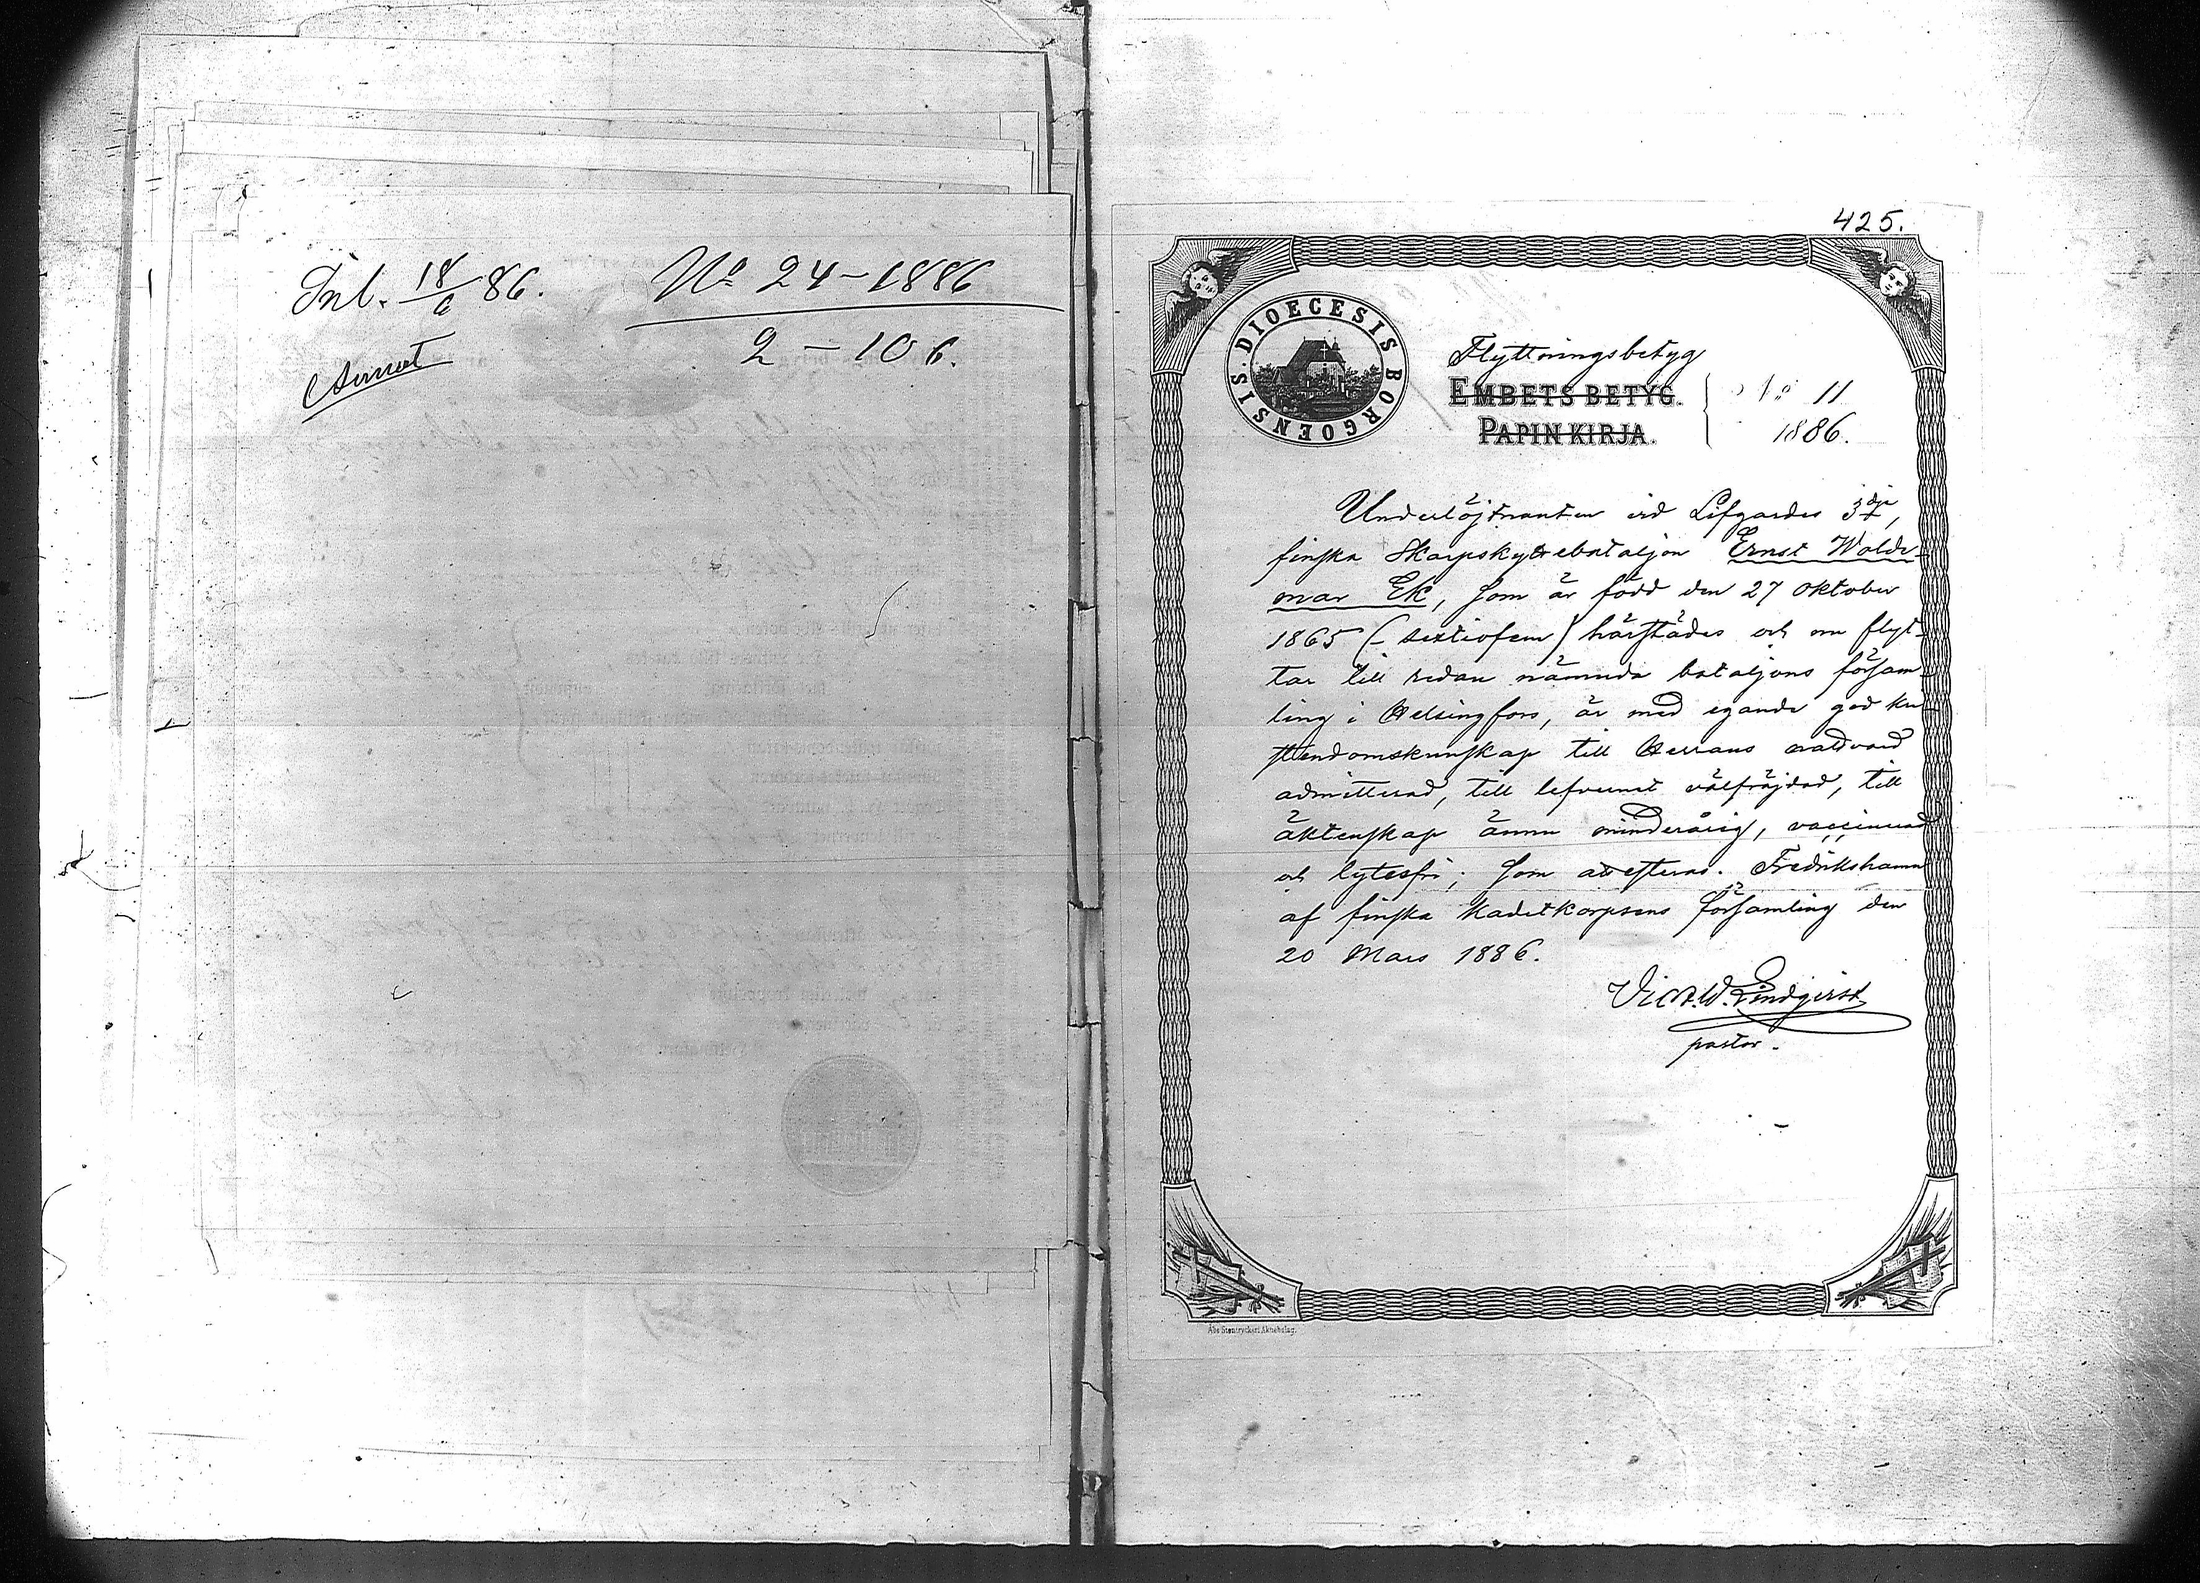 Inl. 18/6 86.
Nº 24–1886
2 – 106.
425.
DIOECESIS BORGOENSIS.
Flyttningsbetyg
EMBETS BETYG.
PAPIN KIRJA.
Nº 11
1886.
Underlöjtnanten vid Lifgardes 3dje,
finska Skarpskyttebataljon Ernst Walde-
mar Ek, som är född den 27 Oktober
1865 (– sextiofem) härstädes och nu flyt-
tar till redan nämnda bataljons försam-
ling i Helsingfors, är med egande god kri-
stendomskunskap till Herrans nattvard
admitterad, till lefvernet välfräjdad, till
äktenskap ännu minderårig, vaccinerad
och lytesfri; som attesteras. Fredrikshamn
af finska Kadettkorpsens församling den
20 Mars 1886.
Vict. W. Lindqvist
pastor.
Åbo Stentryckeri Aktiebolag.